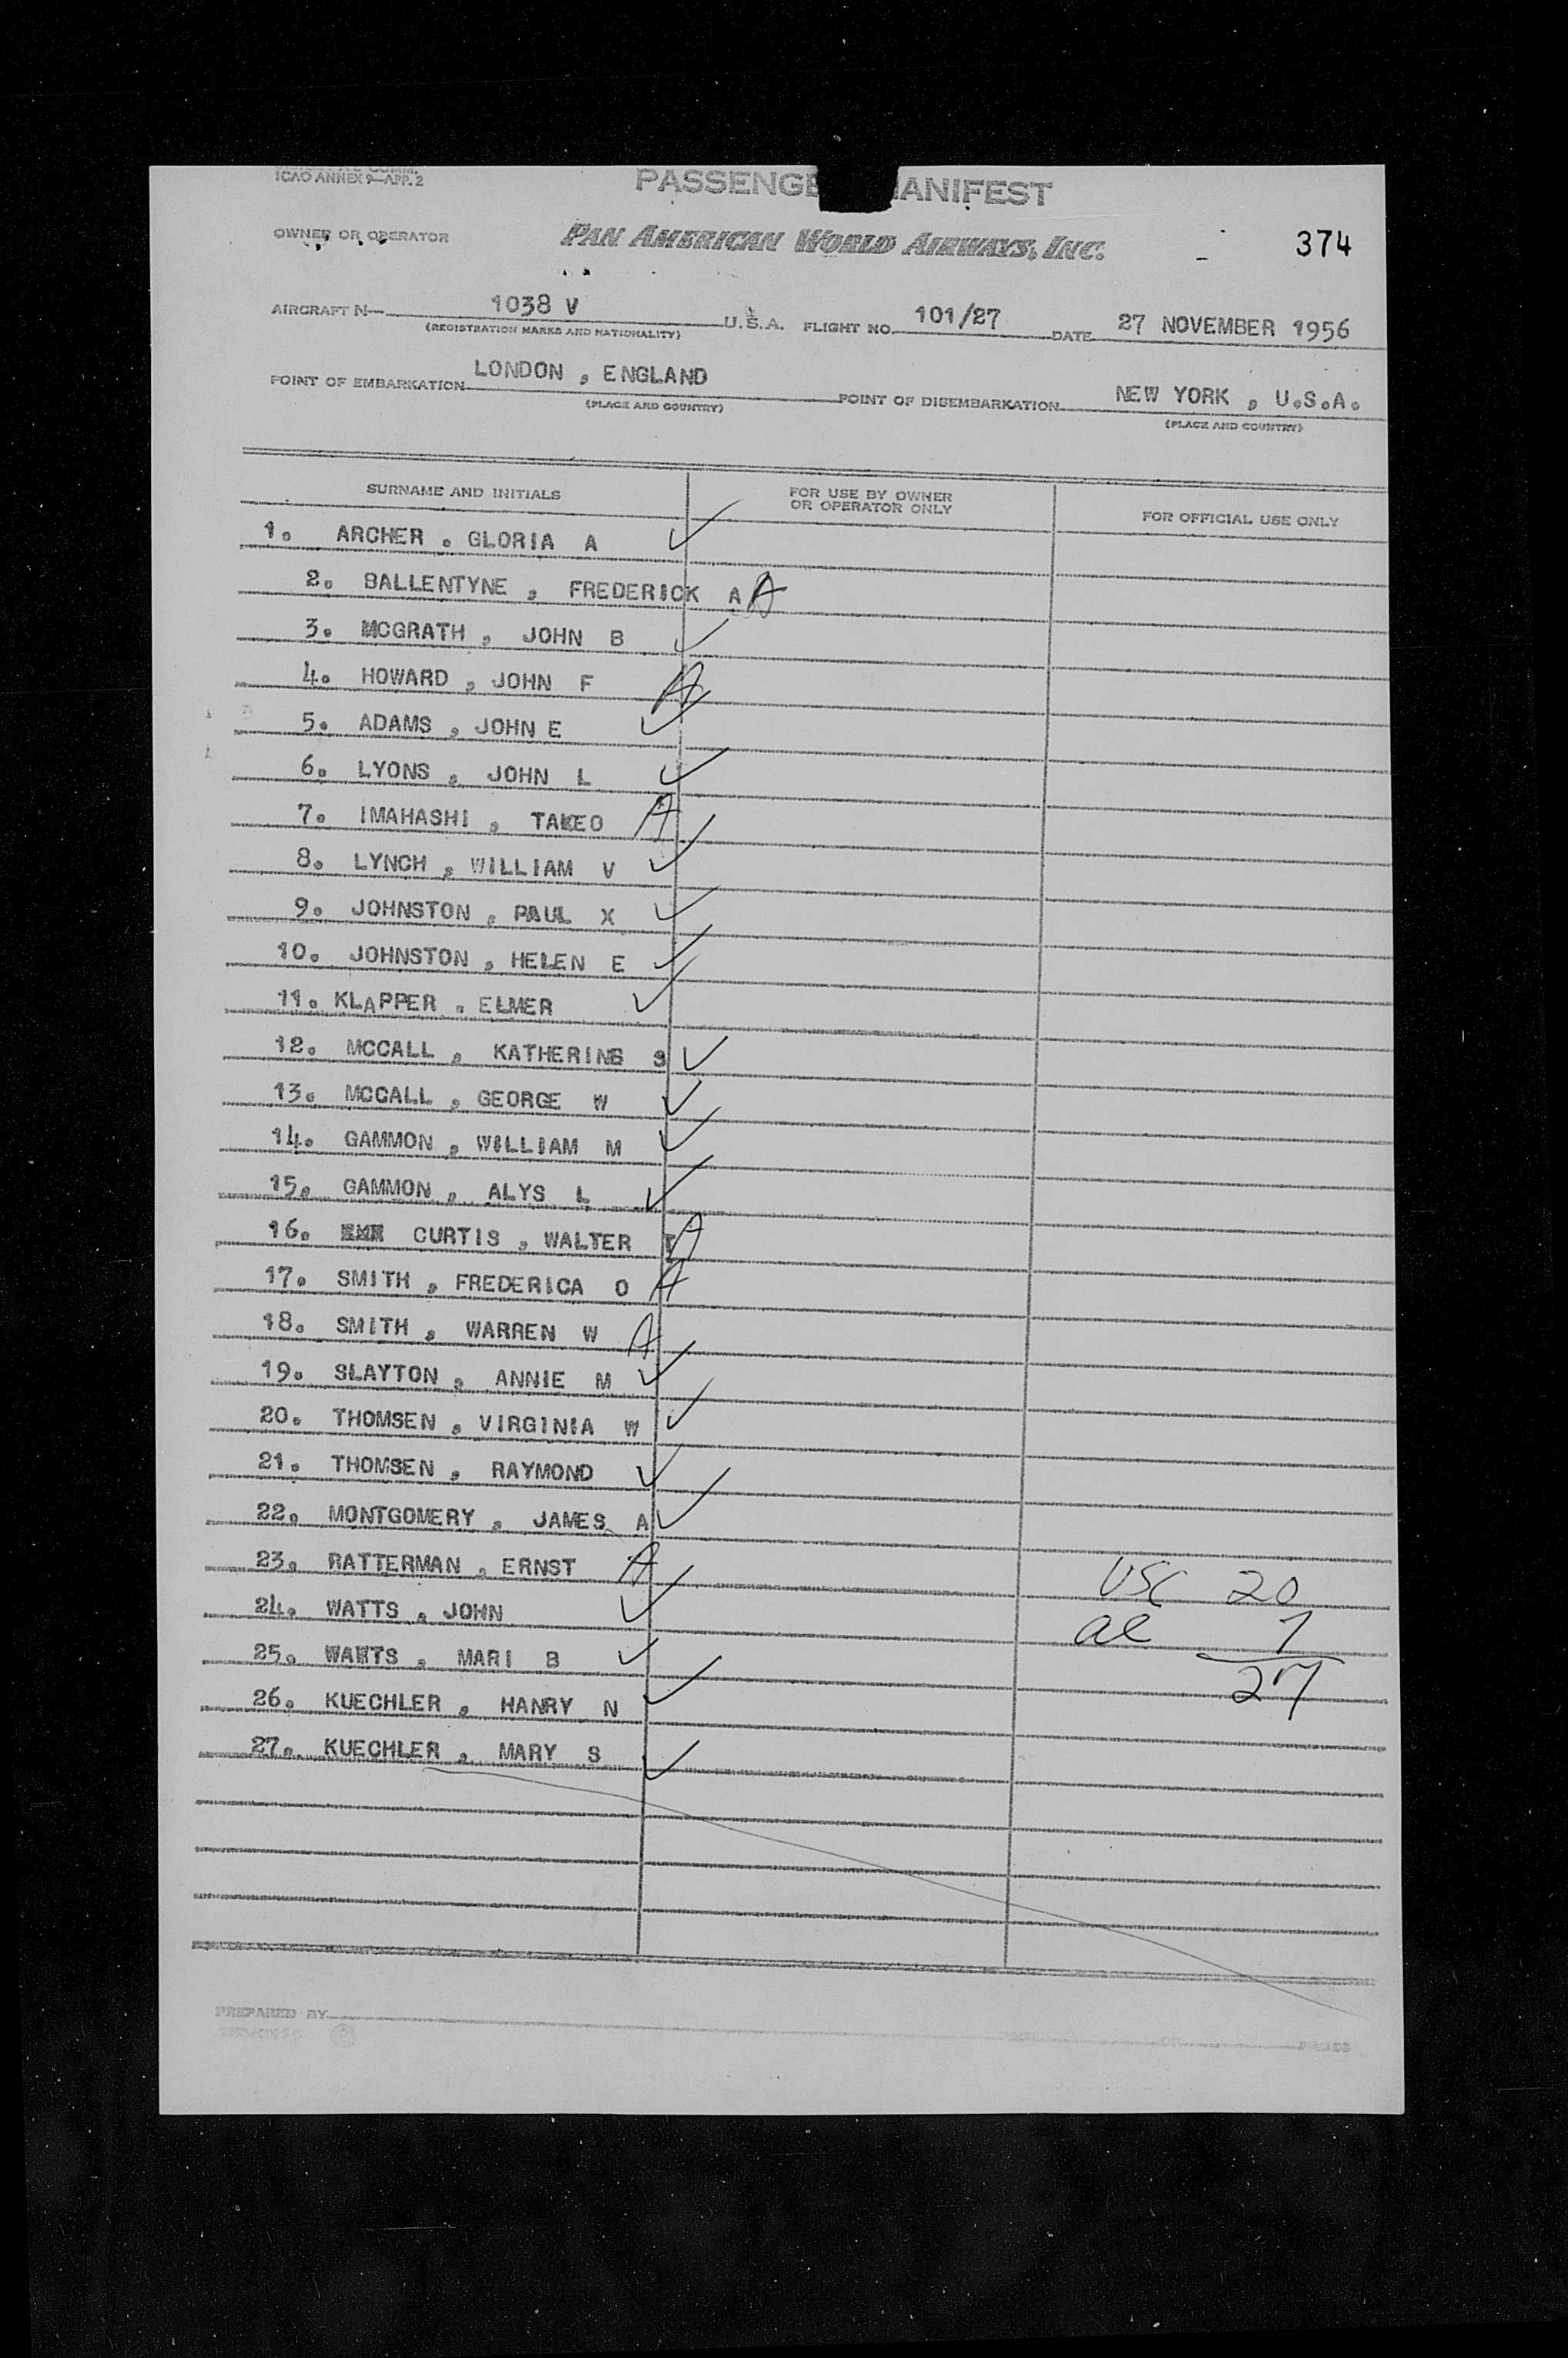 ICAO ANNEX 9—APP. 2
PASSENGE ANIFEST
OWNER OR OPERATOR PAN AMERICAN WORLD AIRWAYS, INC. 374
AIRCRAFT N— 1038 V U.S.A. FLIGHT NO. 101/27 DATE 27 NOVEMBER 1956
(REGISTRATION MARKS AND NATIONALITY)
POINT OF EMBARKATION LONDON , ENGLAND POINT OF DISEMBARKATION NEW YORK , U.S.A.
(PLACE AND COUNTRY) (PLACE AND COUNTRY)
SURNAME AND INITIALS FOR USE BY OWNER OR OPERATOR ONLY FOR OFFICIAL USE ONLY
1. ARCHER , GLORIA A ✓
2. BALLENTYNE , FREDERICK A A
3. MCGRATH , JOHN B ✓
4. HOWARD , JOHN F A
5. ADAMS , JOHN E ✓
6. LYONS , JOHN L ✓
7. IMAHASHI , TAKEO A
8. LYNCH , WILLIAM V ✓
9. JOHNSTON , PAUL X ✓
10. JOHNSTON , HELEN E ✓
11. KLAPPER , ELMER ✓
12. MCCALL , KATHERINE S ✓
13. MCCALL , GEORGE W ✓
14. GAMMON , WILLIAM M ✓
15. GAMMON , ALYS L ✓
16. CURTIS , WALTER T A
17. SMITH , FREDERICA O A
18. SMITH , WARREN W A
19. SLAYTON , ANNIE M ✓
20. THOMSEN , VIRGINIA W ✓
21. THOMSEN , RAYMOND ✓
22. MONTGOMERY , JAMES A ✓
23. RATTERMAN , ERNST A USC 20
24. WATTS , JOHN ✓ al 7
25. WATTS , MARI B ✓ 27
26. KUECHLER , HANRY N ✓
27. KUECHLER , MARY S ✓
PREPARED BY
PAGES